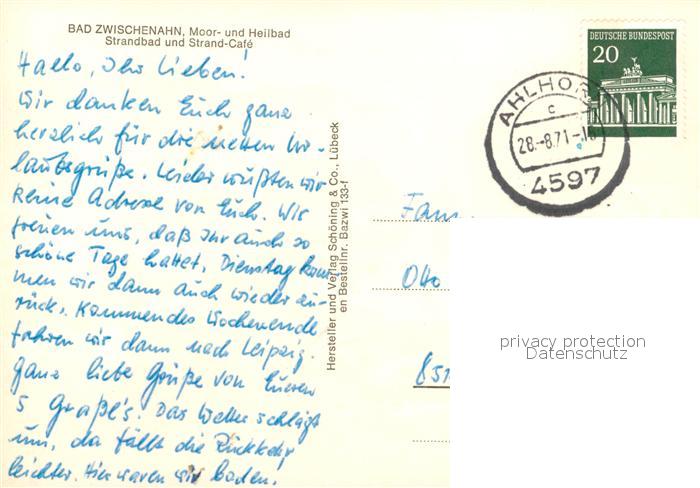 BAD ZWISCHENAHN, Moor- und Heilbad
Strandbad und Strand-Café
Hallo, Ihr Lieben!
Wir danken Euch ganz
herzlich für die netten Ur-
laubsgrüße. Leider wußten wir
keine Adresse von Euch. Wir
freuen uns, daß Ihr auch so
schöne Tage hattet. Dienstag kom-
men wir dann auch wieder zu-
rück. Kommendes Wochenende
fahren wir dann nach Leipzig.
Ganz liebe Grüße von Eueren
5 Graße's. Das Wetter schlägt
um, da fällt die Rückkehr
leichter. Hier waren wir baden!
Hersteller und Verlag Schöning & Co., Lübeck
en Bestellnr. Bazwi 133-f
DEUTSCHE BUNDESPOST
20
AHLHOR
c
28.-8.71-.16
4597
Fam
Otto
851
privacy protection
Datenschutz